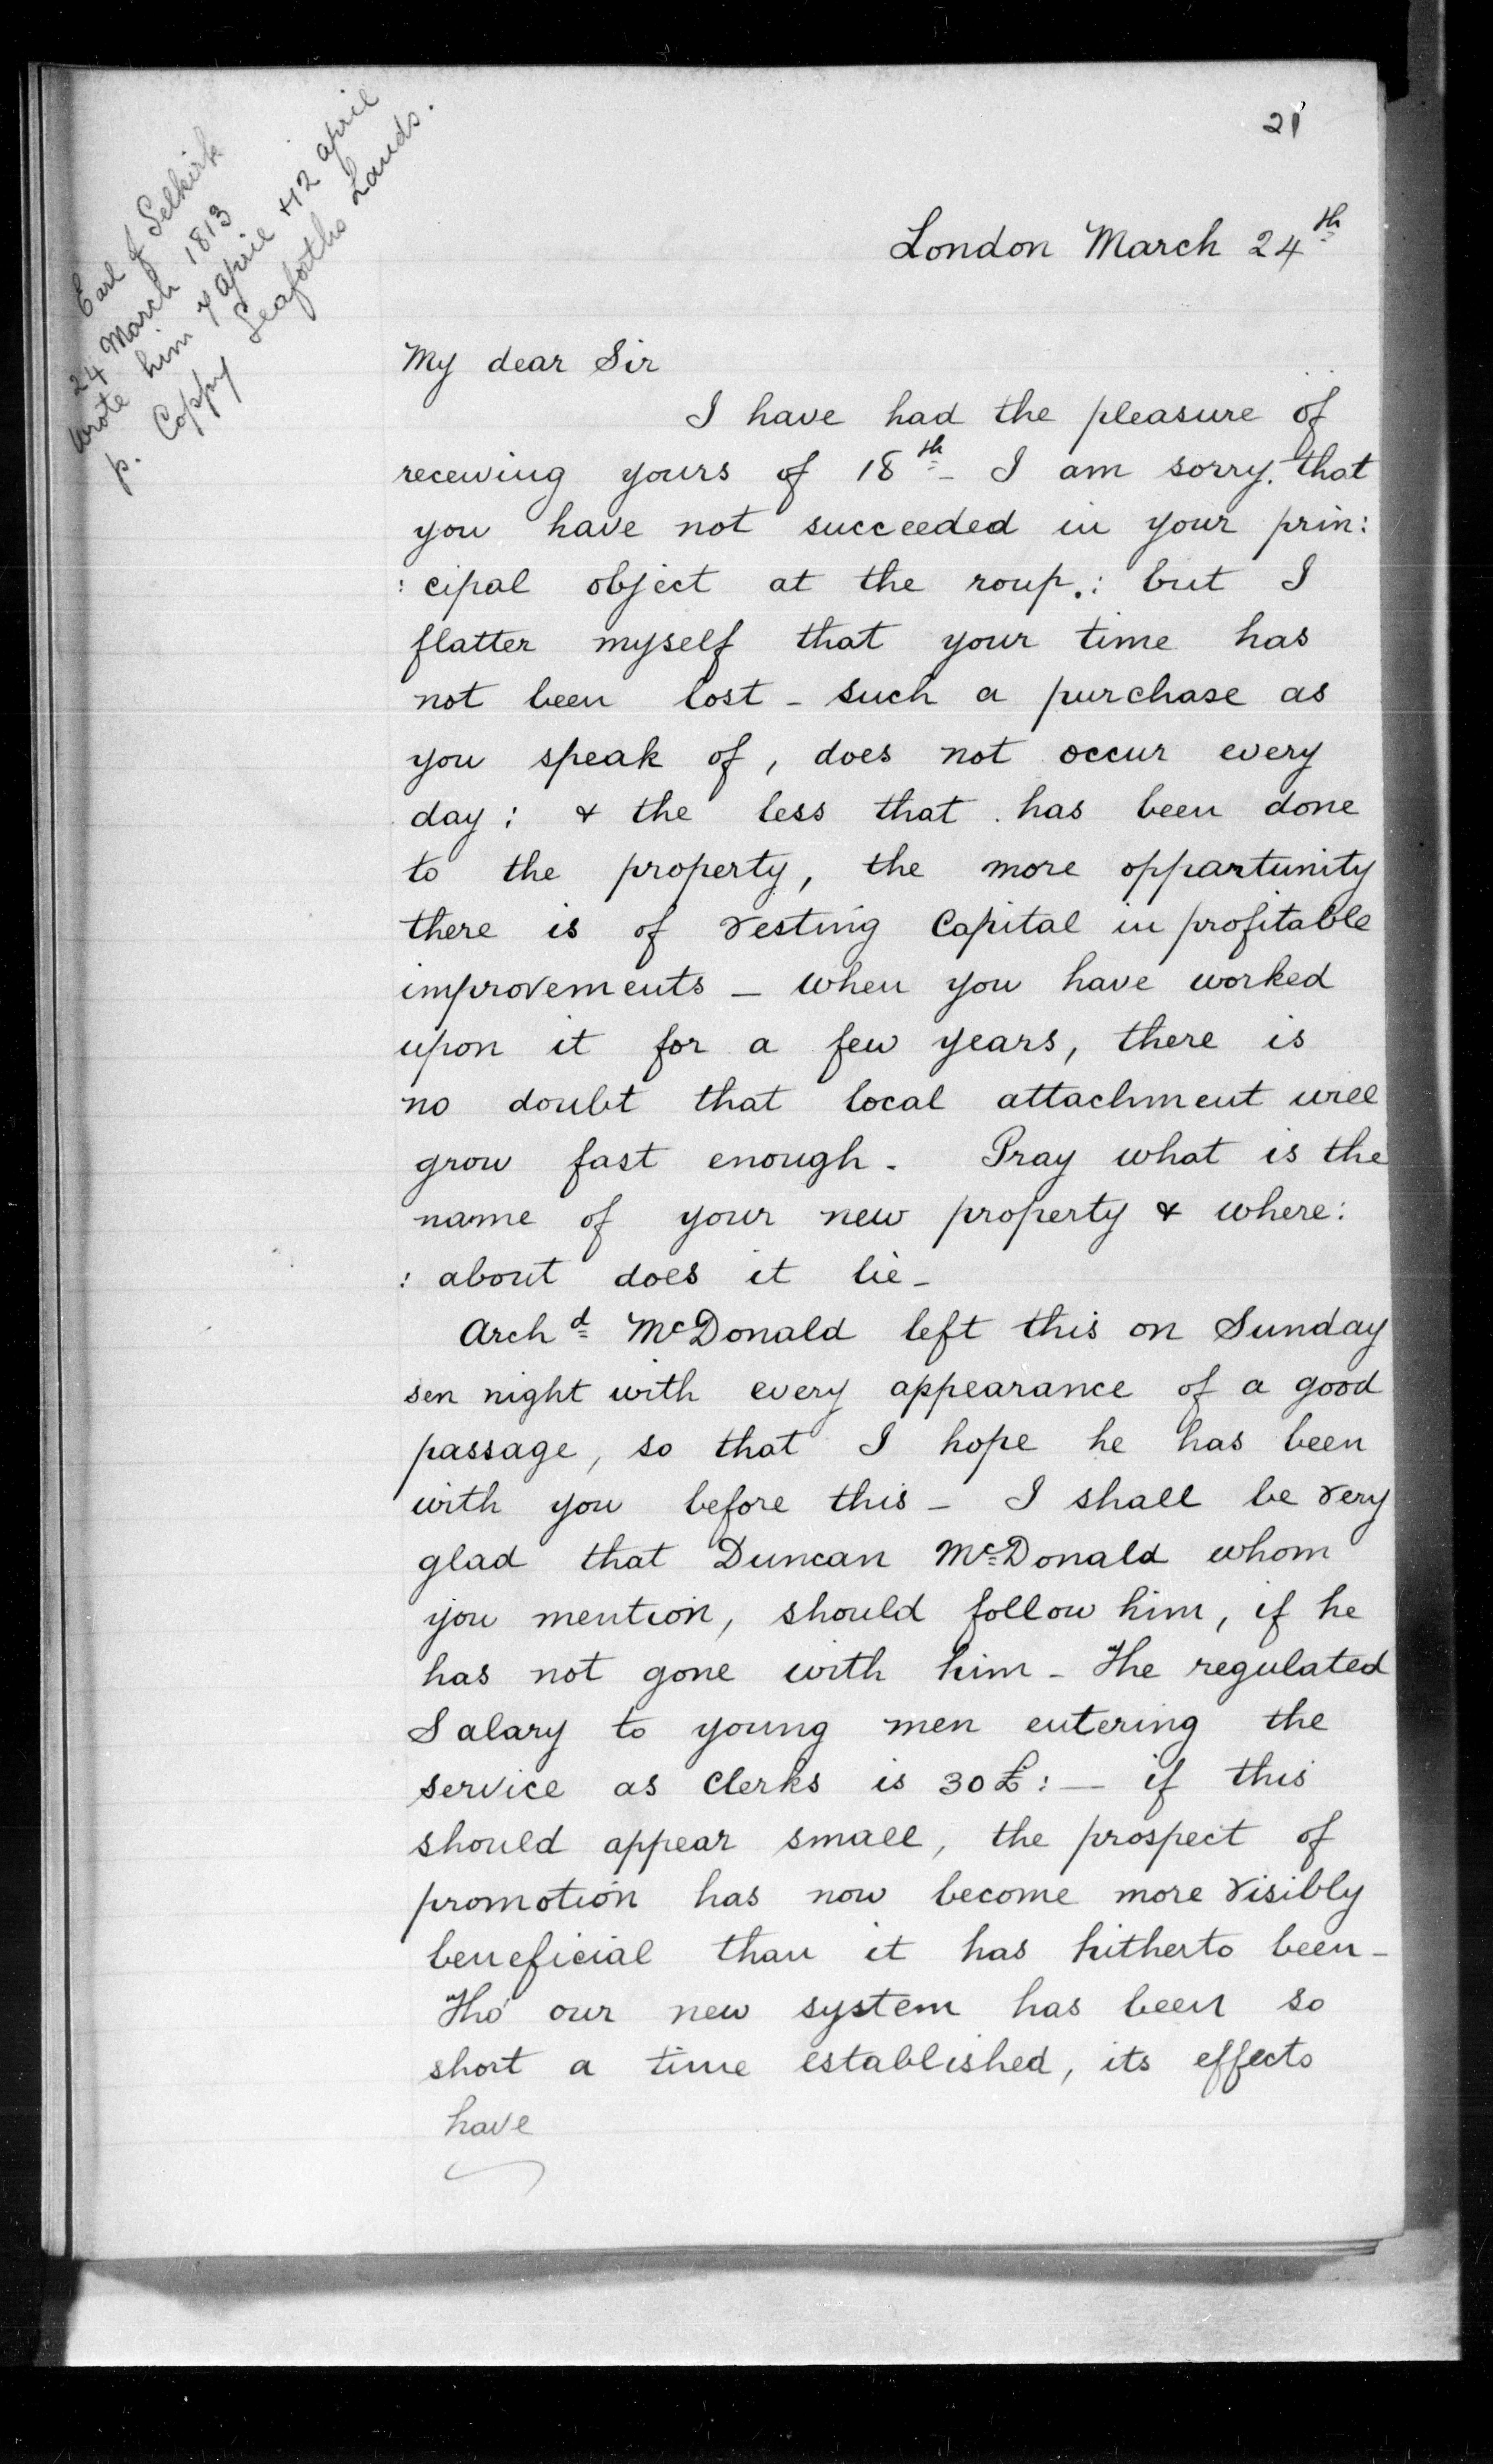 21
Earl of Selkirk
24 March 1813
wrote him 7 april & 12 april
p. Coppy Seaforths Lands.
London March 24th
My dear Sir
I have had the pleasure of
receiving yours of 18th - I am sorry. that
you have not succeeded in your prin:
: cipal object at the roup.: but I
flatter myself that your time has
not been lost - such a purchase as
you speak of, does not occur every
day: & the less that has been done
to the property, the more oppartunity
there is of vesting Capital in profitable
improvements - when you have worked
upon it for a few years, there is
no doubt that local attachment will
grow fast enough. Pray what is the
name of your new property & where:
: about does it lie -
Archd McDonald left this on Sunday
sen night with every appearance of a good
passage, so that I hope he has been
with you before this - I shall be very
glad that Duncan McDonald whom
you mention, should follow him, if he
has not gone with him - The regulated
Salary to young men entering the
service as Clerks is 30£: — if this
should appear small, the prospect of
promotion has now become more visibly
beneficial than it has hitherto been -
Tho' our new system has been so
short a time established, its effects
have